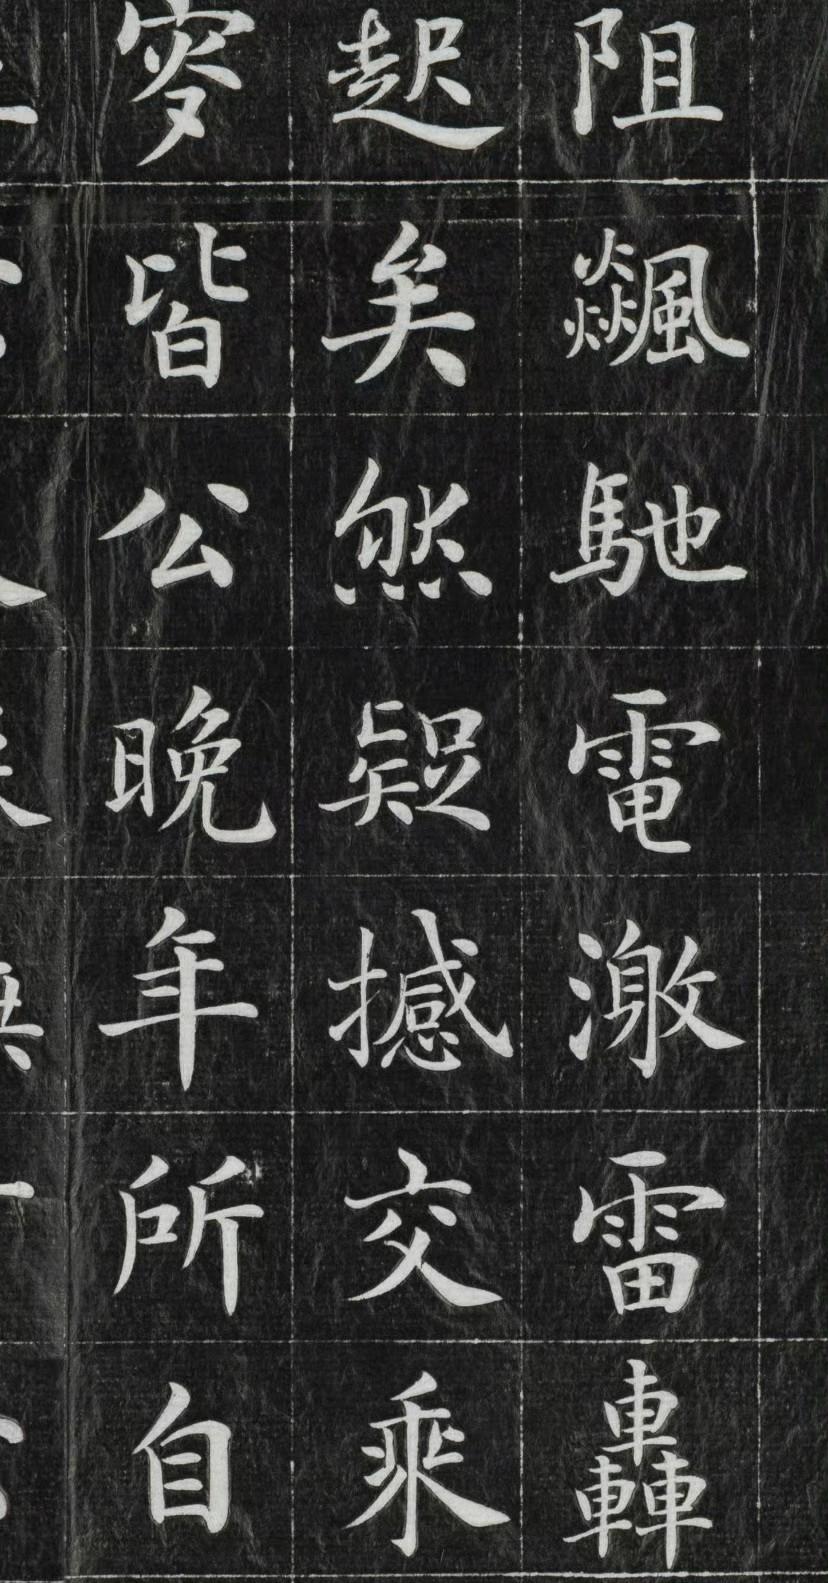 阻飇馳電激雷轟
起矣然疑撼交乘
穸皆公晚年所自